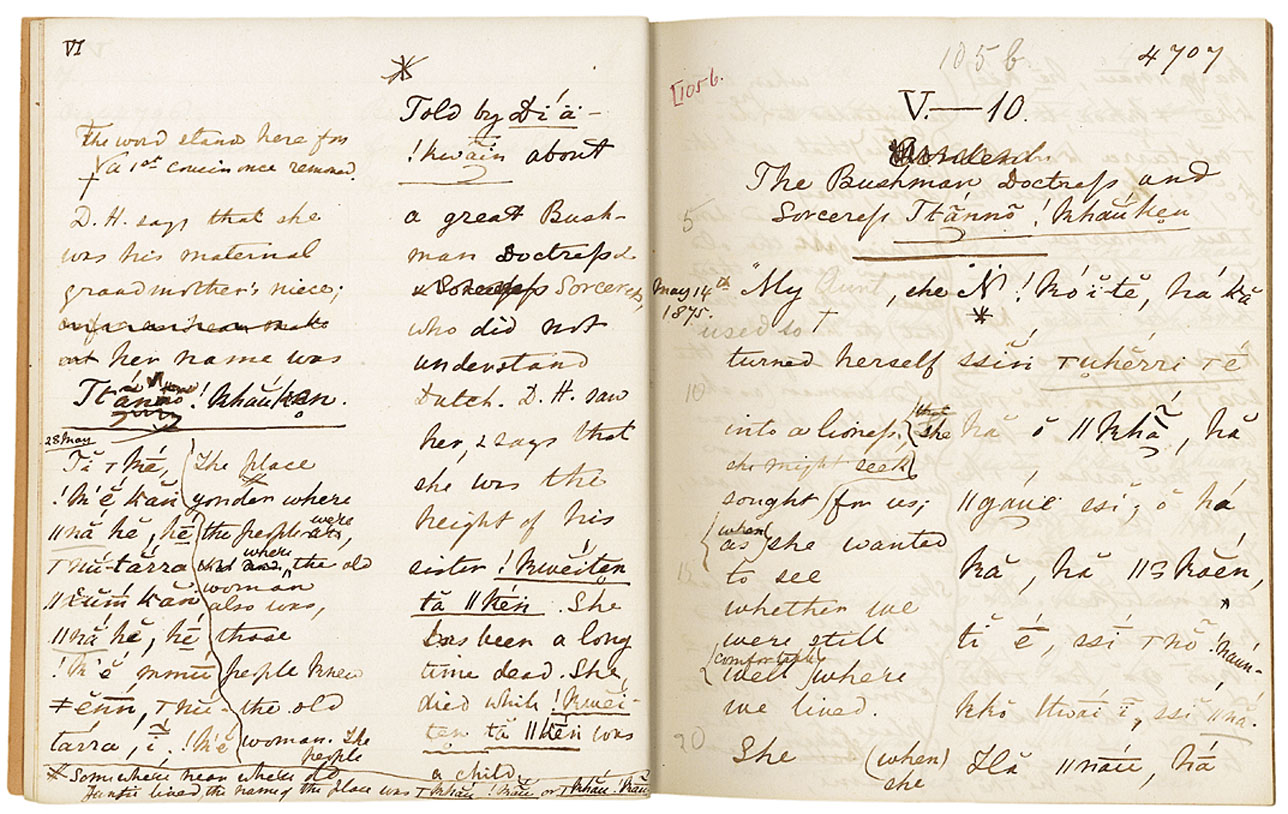 VI
The word stands here for
a 1st cousin once removed
D. H. says that she
was his maternal
grandmother's niece;
her name was
Ttắnnŏ !kháuken.
28 May
Tĭ τ ké, The place
!k'ĕ kăn yonder where
ǁnă hĕ, hĕ the people were are,
τnú-tárra where the old
ǁxŭm kăn woman also was,
ǁnă hĕ, hĕ those
!k'ĕ people knew
≠ĕnn, τnú- the old
tárra, ī. !k'ĕ woman. The
people
* Somewhere near where old
Auntie lived, the name of the place was τkháu !kău or τkháu !kău
*
Told by Día-
!kwăin about
a great Bush-
man Doctress &
Sorceress,
who did not
understand
Dutch. D. H. saw
her, & says that
she was the
height of his
sister !kweiten
tă ǁkēn. She
has been a long
time dead. She
died while !kwei-
ten tă ǁkēn was
a child.
105 b. 4707
[105 b.
V.—10.
The Bushman Doctress and
5 Sorceress Ttắnnŏ !kháuken
May 14th
1875.
"My Aunt, she N !kóĭtĕ, há kă
used to † *
turned herself ssĭń τuhérri τé
10
into a lioness. that she hă ŏ ǁkhă, hă
she might seek
sought for us; ǁgáuĕ ssĭ; ŏ há
(when)
as she wanted kă, hă
15 to see
whether we
were still tĭ é, ssí τnŏ
(comfortable)
well where
we lived. kkŏ ttwáí ī, ssĭ ǁnă.
20 She (when) Hă ǁnău, há
she